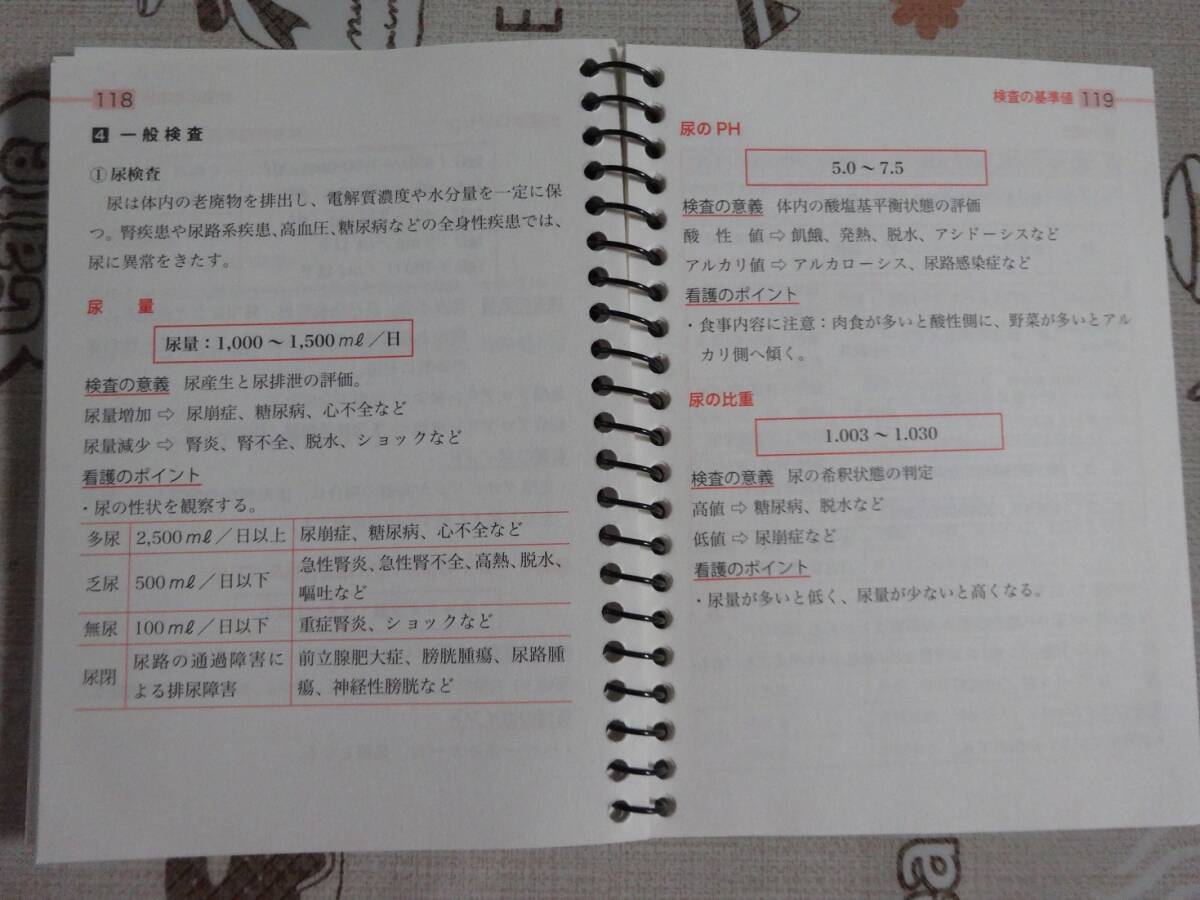 118
4 一般検査
①尿検査
尿は体内の老廃物を排出し、電解質濃度や水分量を一定に保
つ。腎疾患や尿路系疾患、高血圧、糖尿病などの全身性疾患では、
尿に異常をきたす。
尿 量
尿量：1,000～1,500mℓ／日
検査の意義 尿産生と尿排泄の評価。
尿量増加⇨ 尿崩症、糖尿病、心不全など
尿量減少⇨ 腎炎、腎不全、脱水、ショックなど
看護のポイント
・尿の性状を観察する。
多尿 2,500mℓ／日以上 尿崩症、糖尿病、心不全など
乏尿 500mℓ／日以下 急性腎炎、急性腎不全、高熱、脱水、
嘔吐など
無尿 100mℓ／日以下 重症腎炎、ショックなど
尿閉 尿路の通過障害に
よる排尿障害
前立腺肥大症、膀胱腫瘍、尿路腫
瘍、神経性膀胱など
検査の基準値 119
尿のPH
5.0～7.5
検査の意義 体内の酸塩基平衡状態の評価
酸 性 値⇨ 飢餓、発熱、脱水、アシドーシスなど
アルカリ値⇨ アルカローシス、尿路感染症など
看護のポイント
・食事内容に注意：肉食が多いと酸性側に、野菜が多いとアル
カリ側へ傾く。
尿の比重
1.003～1.030
検査の意義 尿の希釈状態の判定
高値⇨ 糖尿病、脱水など
低値⇨ 尿崩症など
看護のポイント
・尿量が多いと低く、尿量が少ないと高くなる。